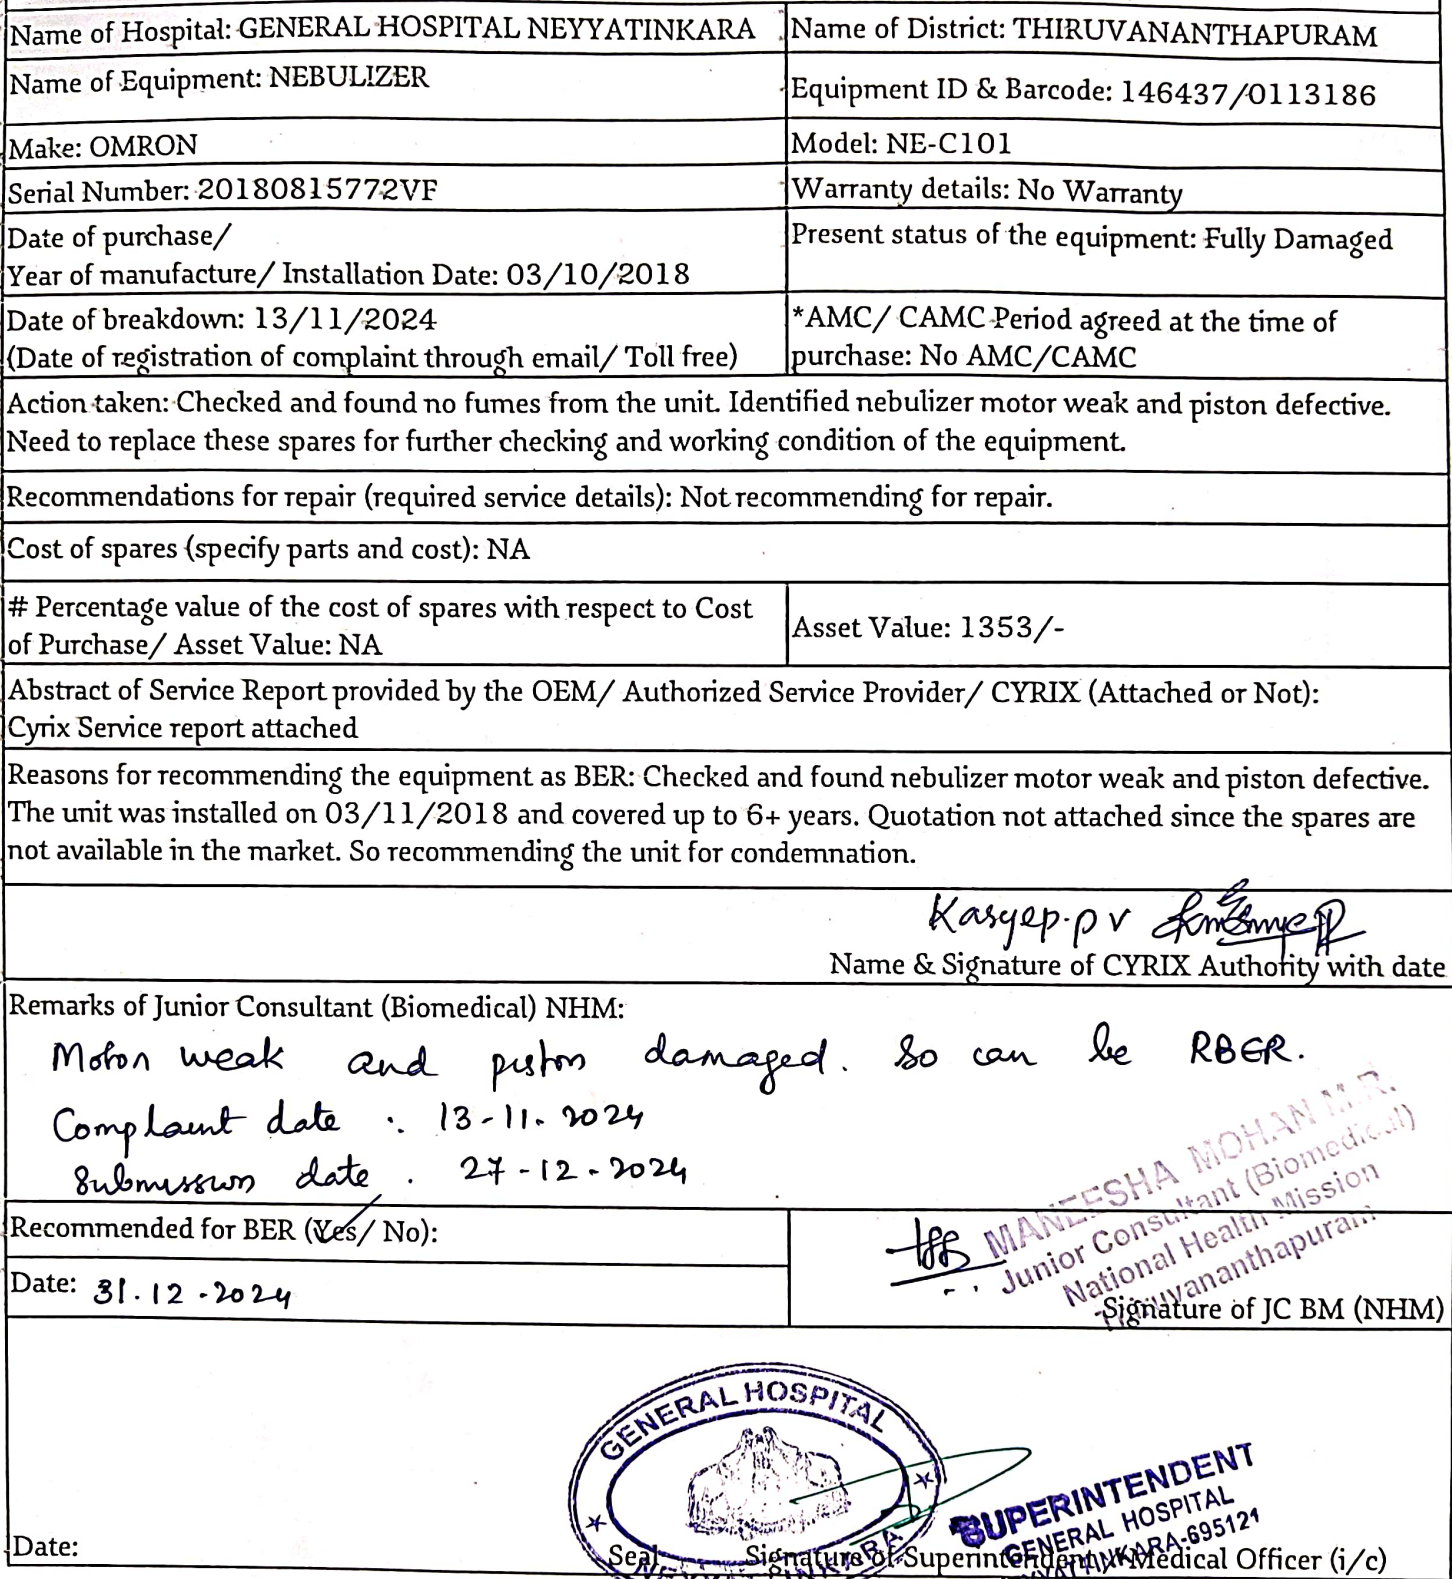 Name of Hospital: GENERAL HOSPITAL NEYYATINKARA
Name of District: THIRUVANANTHAPURAM
Name of Equipment: NEBULIZER
Equipment ID & Barcode: 146437/0113186
Make: OMRON
Model: NE-C101
Serial Number: 20180815772VF
Warranty details: No Warranty
Date of purchase/
Year of manufacture/ Installation Date: 03/10/2018
Present status of the equipment: Fully Damaged
Date of breakdown: 13/11/2024
(Date of registration of complaint through email/ Toll free)
*AMC/ CAMC Period agreed at the time of
purchase: No AMC/CAMC
Action taken: Checked and found no fumes from the unit. Identified nebulizer motor weak and piston defective.
Need to replace these spares for further checking and working condition of the equipment.
Recommendations for repair (required service details): Not recommending for repair.
Cost of spares (specify parts and cost): NA
# Percentage value of the cost of spares with respect to Cost
of Purchase/ Asset Value: NA
Asset Value: 1353/-
Abstract of Service Report provided by the OEM/ Authorized Service Provider/ CYRIX (Attached or Not):
Cyrix Service report attached
Reasons for recommending the equipment as BER: Checked and found nebulizer motor weak and piston defective.
The unit was installed on 03/11/2018 and covered up to 6+ years. Quotation not attached since the spares are
not available in the market. So recommending the unit for condemnation.
Kasyep. p v
Name & Signature of CYRIX Authority with date
Remarks of Junior Consultant (Biomedical) NHM:
Motor weak and piston damaged. So can be RBER.
Complaint date : 13-11-2024
Submission date . 27-12-2024
MANEESHA MOHAN M.R.
Junior Consultant (Biomedical)
National Health Mission
Thiruvananthapuram
Recommended for BER (Yes/ No):
Date: 31.12.2024
Signature of JC BM (NHM)
GENERAL HOSPITAL
SUPERINTENDENT
GENERAL HOSPITAL
NEYYATTINKARA-695121
Date:
Seal
Signature of Superintendent/ Medical Officer (i/c)